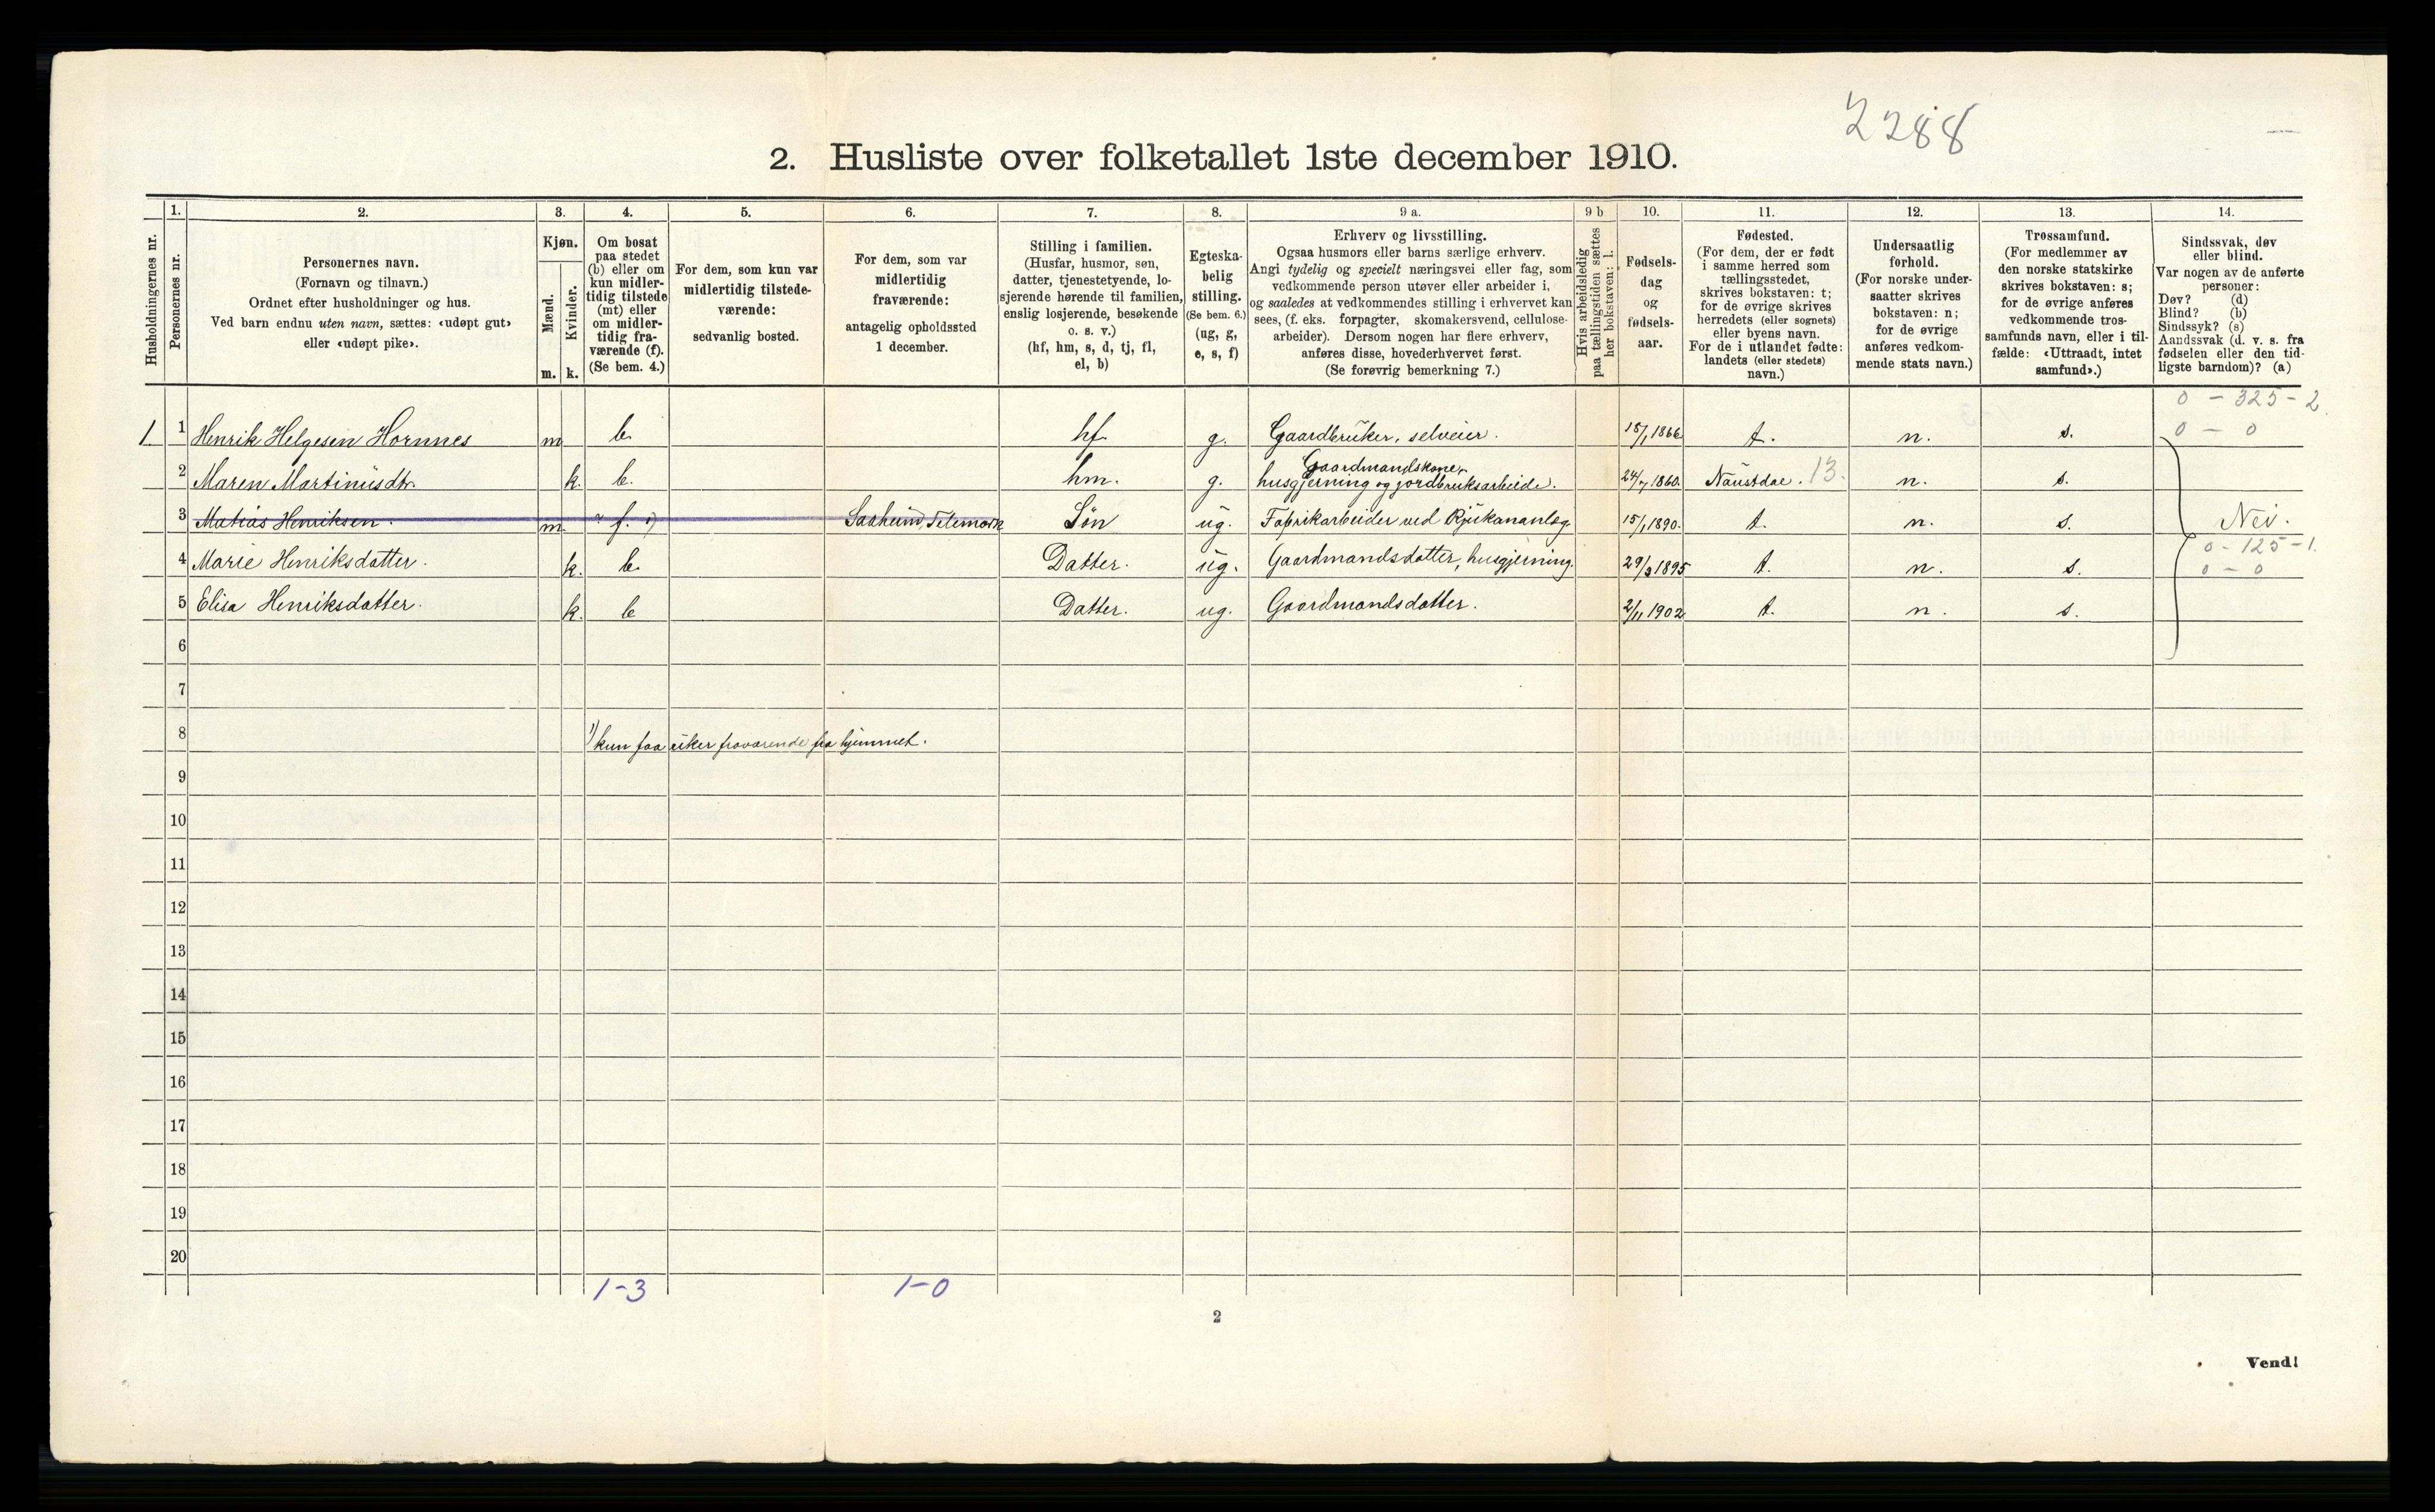 2288
2. Husliste over folketallet 1ste december 1910.
Husholdningernes nr.
1.
Personernes nr.
2.
Personernes navn.
(Fornavn og tilnavn.)
Ordnet efter husholdninger og hus.
Ved barn endnu uten navn, sættes: «udøpt gut»
eller «udøpt pike».
3.
Kjøn.
Mænd.
Kvinder.
m. k.
4.
Om bosat
paa stedet
(b) eller om
kun midler-
tidig tilstede
(mt) eller
om midler-
tidig fra-
værende (f).
(Se bem. 4.)
5.
For dem, som kun var
midlertidig tilstede-
værende:
sedvanlig bosted.
6.
For dem, som var
midlertidig
fraværende:
antagelig opholdssted
1 december.
7.
Stilling i familien.
(Husfar, husmor, søn,
datter, tjenestetyende, lo-
sjerende hørende til familien,
enslig losjerende, besøkende
o. s. v.)
(hf, hm, s, d, tj, fl,
el, b)
8.
Egteska-
belig
stilling.
(Se bem. 6.)
(ug, g,
e, s, f)
9 a.
Erhverv og livsstilling.
Ogsaa husmors eller barns særlige erhverv.
Angi tydelig og specielt næringsvei eller fag, som
vedkommende person utøver eller arbeider i,
og saaledes at vedkommendes stilling i erhvervet kan
sees, (f. eks. forpagter, skomakersvend, cellulose-
arbeider). Dersom nogen har flere erhverv,
anføres disse, hovederhvervet først.
(Se forøvrig bemerkning 7.)
9 b
Hvis arbeidsledig
paa tællingstiden sættes
her bokstaven: l.
10.
Fødsels-
dag
og
fødsels-
aar.
11.
Fødested.
(For dem, der er født
i samme herred som
tællingsstedet,
skrives bokstaven: t;
for de øvrige skrives
herredets (eller sognets)
eller byens navn.
For de i utlandet fødte:
landets (eller stedets)
navn.)
12.
Undersaatlig
forhold.
(For norske under-
saatter skrives
bokstaven: n;
for de øvrige
anføres vedkom-
mende stats navn.)
13.
Trossamfund.
(For medlemmer av
den norske statskirke
skrives bokstaven: s;
for de øvrige anføres
vedkommende tros-
samfunds navn, eller i til-
fælde: «Uttraadt, intet
samfund».)
14.
Sindssvak, døv
eller blind.
Var nogen av de anførte
personer:
Døv? (d)
Blind? (b)
Sindssyk? (s)
Aandssvak (d. v. s. fra
fødselen eller den tid-
ligste barndom)? (a)
0 - 325 - 2.
1 1 Henrik Helgesen Hornnes m b. hf. g. Gaardbruker, selveier. 18/1 1866 t. n. s. 0 - 0
2 Maren Martinusdtr. k. b. hm. g. Gaardmandskone, husgjerning og jordbruksarbeide. 24/7 1860. Naustdal. 13. n. s.
3 Matias Henriksen. m f. 1) Saaheim, Telemark Søn ug. Fabrikarbeider ved Rjukananlæg. 15/1 1890. t. n. s. Nei.
0 - 125 - 1.
4 Marie Henriksdatter. k. b. Datter. ug. Gaardmandsdatter, husgjerning. 29/3 1895 t. n. s. 0 - 0
5 Elisa Henriksdatter. k. b Datter. ug. Gaardmandsdatter. 2/11 1902 t. n. s.
6
7
8 1) kun faa uker fraværende fra hjemmet.
9
10
11
12
13
14
15
16
17
18
19
20
1-3 1-0
2
Vend!